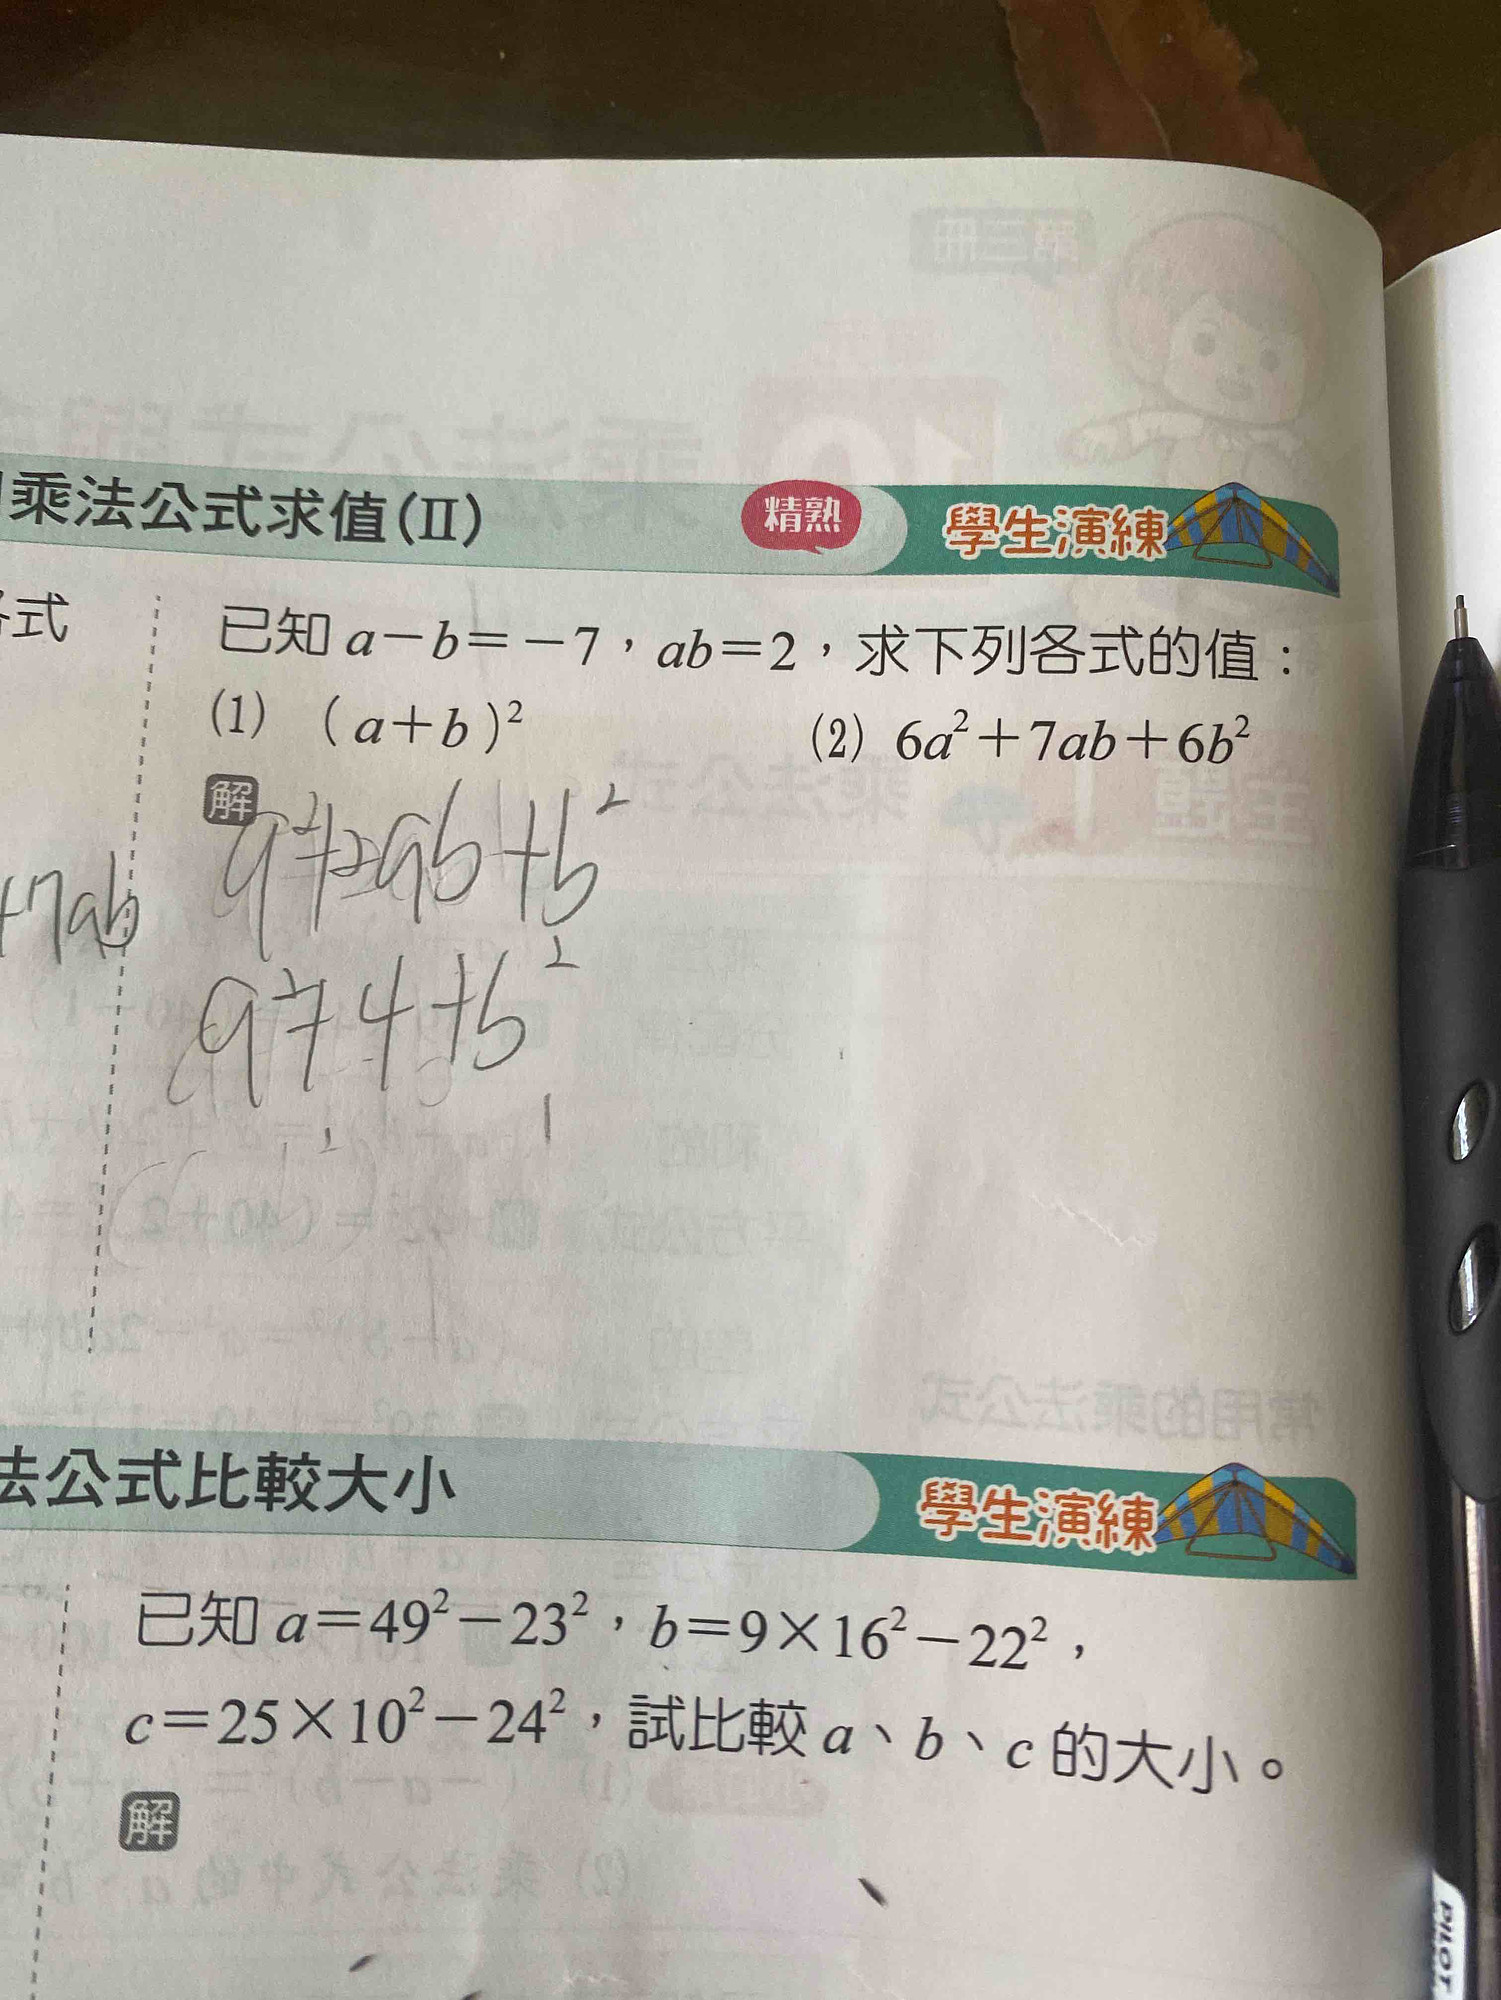 乘法公式求值(Ⅱ) 精熟 學生演練
式
已知 a－b＝－7，ab＝2，求下列各式的值：
(1) (a＋b)² (2) 6a²＋7ab＋6b²
解
a²+2ab+b²
+7ab
a²+4+b²
法公式比較大小 學生演練
已知 a＝49²－23²，b＝9×16²－22²，
c＝25×10²－24²，試比較 a、b、c 的大小。
解
PILOT